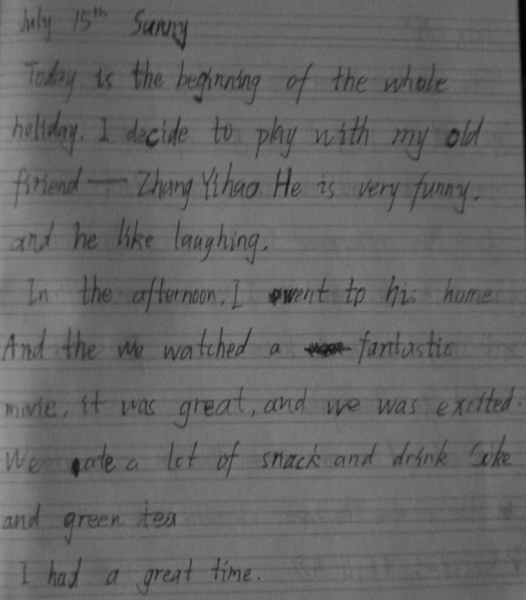 July 15th Sunny
Today is the beginning of the whole
holiday. I decide to play with my old
friend — Zhang Yihao. He is very funny.
and he like laughing.
In the afternoon, I went to his home.
And the we watched a fantastic
movie, it was great, and we was excited.
We ate a lot of snack and drink Coke
and green tea
I had a great time.